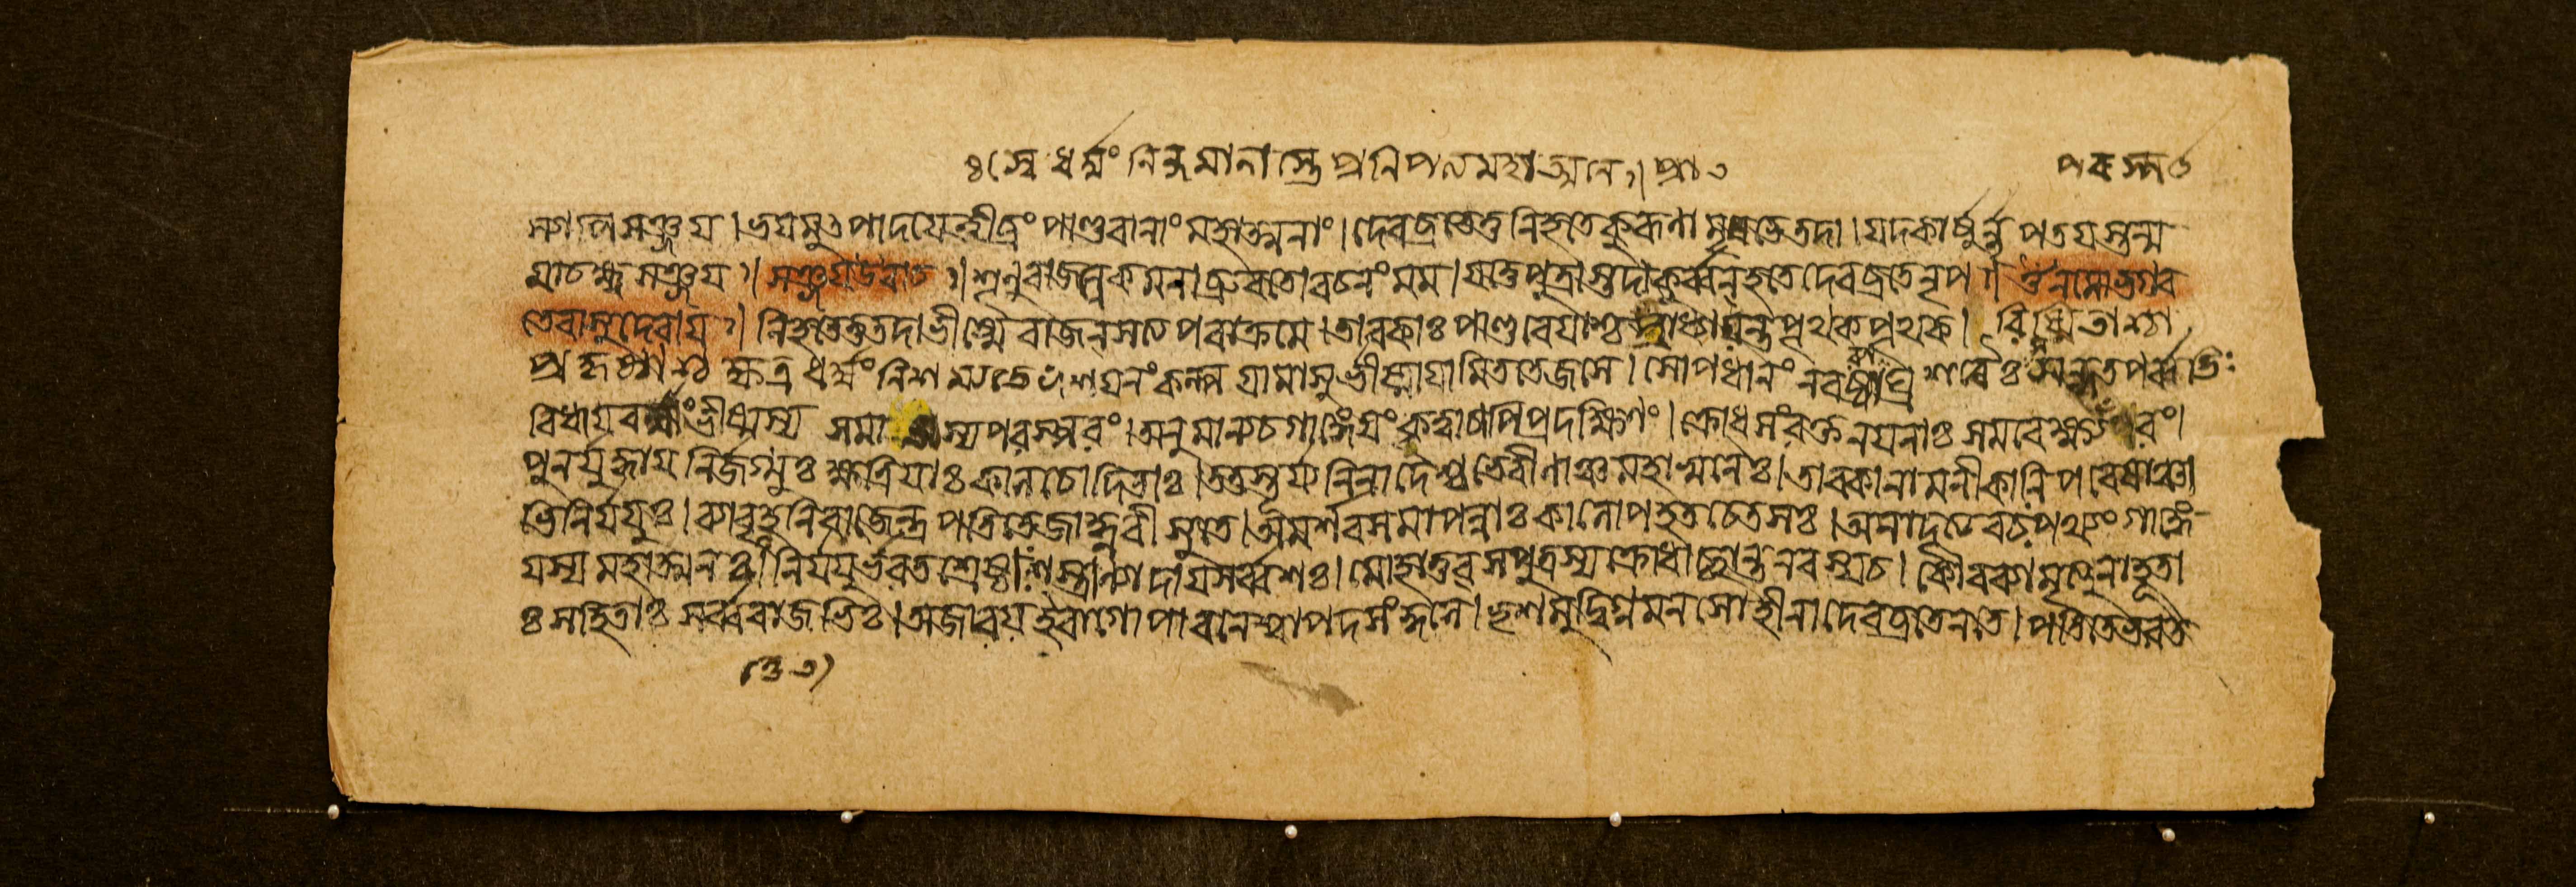 ঃ স্ব ধর্ম্মং নিন্দমানাস্তে প্রনিপত্য মহাত্মনে ৷৷
সঞ্জয় । ভয়মুৎপাদয়েত্তীব্রং পাণ্ডবানাং মহাত্মনাং । দেবব্রতেতু নিহতে কুরূণামৃষভে তদা । যদকার্ষুর্নৃপতয়স্তন্ম
মাচক্ষ্ব সঞ্জয় ৷৷ সঞ্জয় উবাচ ৷৷ শৃনু রাজন্নেকমনা ব্রুবতো বচনং মম । যত্তে পুত্রাস্তদাকুর্ব্বন্ হতে দেবব্রতে নৃপ ৷৷ ওঁ নমো ভগব
তে বাসুদেবায় ৷৷ নিহতেতু তদা ভীষ্মে রাজন্ সত্যপরাক্রমে । তাবকাঃ পাণ্ডবেয়াশ্চ প্রাধ্যায়ন্ত পৃথক্ পৃথক্ । বিস্মিতাশ্চ
প্রহৃষ্টাশ্চ ক্ষত্র ধর্ম্মং নিশম্যতে শয়নং কল্পয়ামাসুর্ভীষ্মায়ামিততেজসে । সোপধানং নরব্যাঘ্র শরৈঃ সন্নতপর্ব্বভিঃ
বিধায় রক্ষাং ভীষ্মস্য সমাভাষ্য পরস্পরং । অনুমান্যচ গাঙ্গেয়ং কৃত্বাচাপি প্রদক্ষিণং । ক্রোধসংরক্তনয়নাঃ সমবেক্ষ্য রং ।
পুনর্যুদ্ধায় নির্জগ্মুঃ ক্ষত্রিয়াঃ কালচোদিতাঃ । ততস্তূর্য্য নিনাদৈশ্চ ভেরীণাঞ্চ মহাস্বনৈঃ । তাবকানামনীকানি পরেষাঞ্চা
নির্যযুঃ । ব্যাবৃত্তেহনি রাজেন্দ্র পতিতে জাহ্নবী সুতে । অমর্শবসমাপন্নাঃ কালোপহতচেতসঃ । অনাদৃত্য বচঃ পথ্যং গাঙ্গে
য়স্য মহাত্মনঃ । নির্যযুর্ভরতশ্রেষ্ঠাঃ শস্ত্রান্যাদায় সর্ব্বশঃ । মোহাত্তব সপুত্রস্য ক্রোধাচ্ছান্তনবস্যচ । কৌরব্যা মৃত্যুনাহূতা
ঃ সহিতাঃ সর্ব্বরাজভিঃ । অজাবয় ইবাগোপা বনে শ্বাপদসংকুলে । ভৃশমুদ্বিগ্নমনসো হীনা দেবব্রতেনতে । পতিতে ভরত